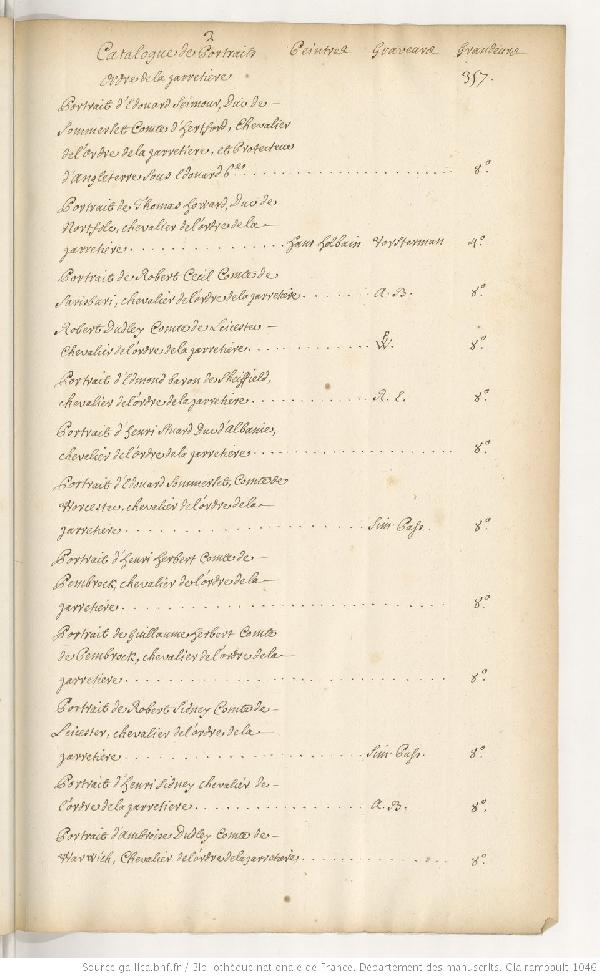 2
Catalogue de Portraits Peintres Graveurs Grandeurs
Ordre de la jarretiere 357.
Portrait d'Edouard Seimour, Duc de
Sommerset Comte d'hertford, Chevalier
de l'ordre de la jarretiere, et Protecteur
d'Angleterre sous Edouard 6. 8º
Portrait de Thomas howard, Duc de
Northfolc, chevalier de l'ordre de la
jarretiere Hans holbain Vorsterman 4º
Portrait de Robert Cecil Comte de
Sarisburi, chevalier de l'ordre de la jarretiere A. B. 8º
Robert Dudley Comte de Leicester
Chevalier de l'ordre de la jarretiere W. 8º
Portrait d'Edmond baron de Sheiffield,
chevalier de l'ordre de la jarretiere R. E. 8º
Portrait d'henri Stuard Duc d'Albanie,
chevalier de l'ordre de la jarretiere 8º
Portrait d'Edouard Sommerset, Comte de
Worcester, chevalier de l'ordre de la
jarretiere Sim. Pass. 8º
Portrait d'henri herbert Comte de
Pembrock, chevalier de l'ordre de la
jarretiere 8º
Portrait de Guillaume herbert Comte
de Pembrock, chevalier de l'ordre de la
jarretiere 8º
Portrait de Robert Sidney Comte de
Leicester, chevalier de l'ordre de la
jarretiere Sim. Pass. 8º
Portrait d'henri Sidney chevalier de
l'ordre de la jarretiere A. B. 8º
Portrait d'Ambroise Dudley Comte de
Warwich, Chevalier de l'ordre de la jarretiere 8º
Source gallica.bnf.fr / Bibliothèque nationale de France. Département des manuscrits. Clairambault 1046